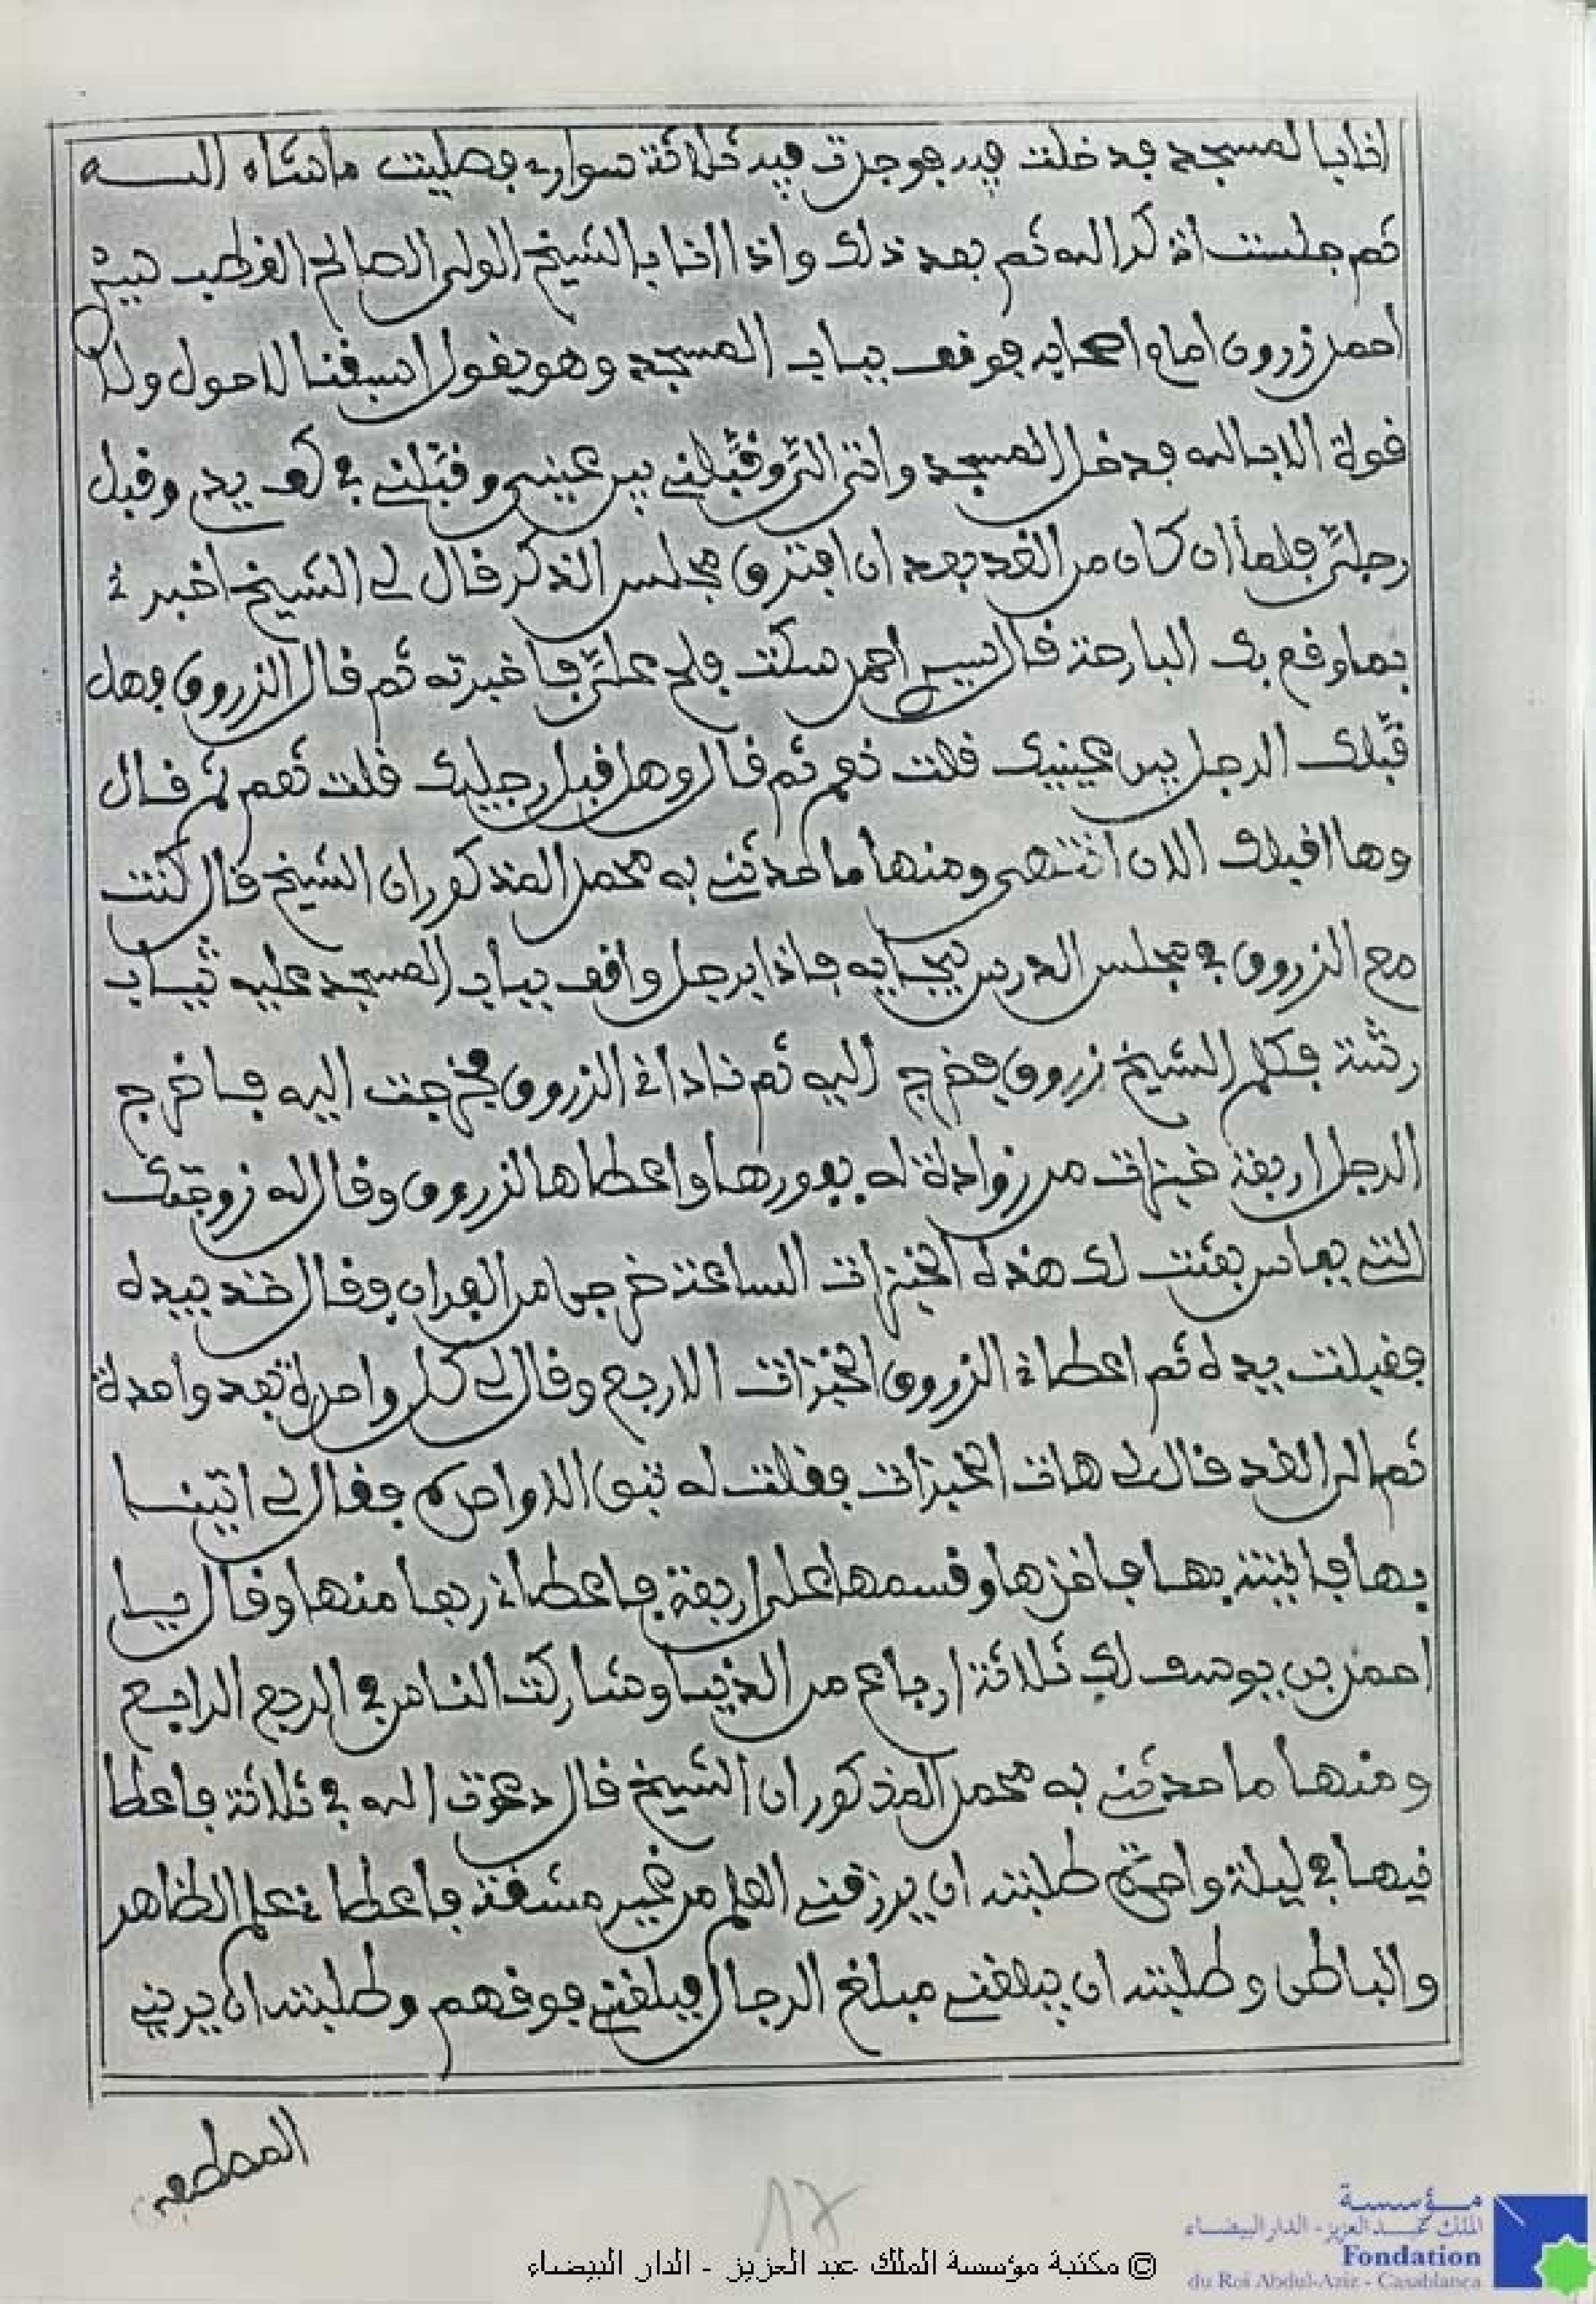 انا بالمسجد فدخلت فيه فوجدت فيه ثلاثة سواري فصليت ما شاء الله
ثم جلست اذكر الله ثم بعد ذلك واذا انا بالشيخ الولي الصالح القطب سيدي
احمد زروق امام اصحابه فوقف بباب المسجد وهو يقول اسبقنا لا حول ولا
قوة الا بالله فدخل المسجد واتى الي وقبلني بين عيني وقبلني في كف يدي وقبل
رجلي فلما ان كان من الغد بعد ان افترق مجلس الذكر قال لي الشيخ اخبرني
بما وقع بك البارحة قال سيدي احمد سكت فلح علي فاخبرته ثم قال الزروق وهل
قبلك الرجل بين عينيك قلت نعم ثم قال وهل قبل رجليك قلت نعم ثم قال
وها اقبلك الان انتهى ومنها ما حدثني به محمد المذكور ان الشيخ قال كنت
مع الزروق في مجلس الدرس ببجايه فاذا برجل واقف بباب المسجد عليه ثياب
رثة فكلم الشيخ زروق فخرج اليه ثم ناداني الزروق فخرجت اليه فاخرج
الرجل اربعة خبزات من زوادة له بفورها واعطاها لزروق وقال له زوجتك
التي بفاس بعثت لك هذه الخبزات الساعة خرجوا من الفران وقال خذ بيده
فقبلت يده ثم اعطاني الزروق الخبزات الاربع وقال لي كل واحدة بعد واحدة
ثم الى الغد قال لي هات الخبزات فقلت له تبق الا واحدة فقال لي اتينا
بها فاتيته بها فاخذها وقسمها على اربعة فاعطاني ربعا منها وقال يا
احمد بن يوسف لك ثلاثة ارباع من الدنيا وشاركت الناس في الربع الرابع
ومنها ما حدثني به محمد المذكور ان الشيخ قال دعوت الله في ثلاثة فاعطا
نيها في ليلة واحدة طلبته ان يرزقني العلم من غير مشقة فاعطاني علم الظاهر
والباطن وطلبته ان يبلغني مبلغ الرجال فبلغني فوقهم وطلبته ان يريني
المصطفى
17
© مكتبة مؤسسة الملك عبد العزيز - الدار البيضاء
مؤسسة
الملك عبد العزيز - الدار البيضاء
Fondation
du Roi Abdul-Aziz - Casablanca